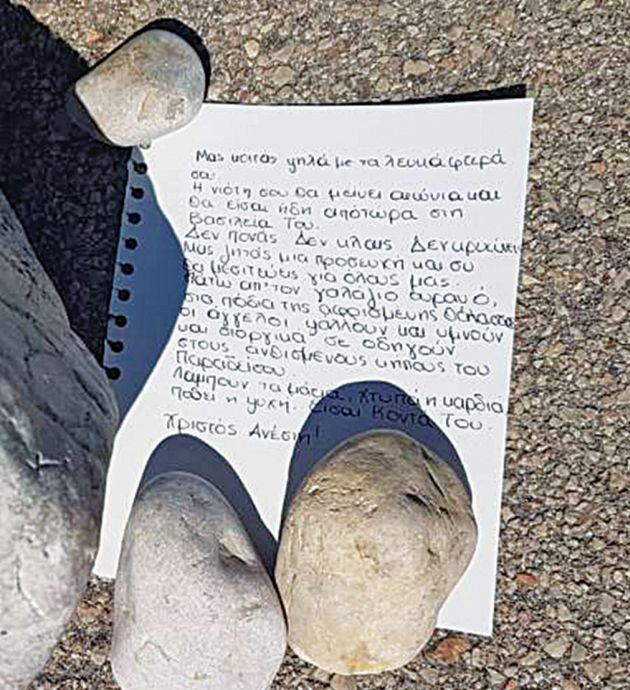 Μας κοιτάς ψηλά με τα λευκά φτερά
σου.
Η νιότη σου θα μείνει αιώνια και
θα είσαι ήδη από τώρα στη
Βασιλεία Του.
Δεν πονάς. Δεν κλαις. Δεν κρυώνεις
Μας ζητάς μια προσευχή και συ
θα μεσιτεύεις για όλους μας.
Κάτω απ' τον γαλάζιο ουρανό,
στα πόδια της αφρισμένης θάλασσας
οι άγγελοι ψάλλουν και υμνούν
και σε οδηγούν
στους ανθισμένους κήπους του
Παραδείσου.
Λάμπουν τα μάτια, χτυπά η καρδιά
ποθεί η ψυχή. Είσαι Κοντά Του.
Χριστός Ανέστη!